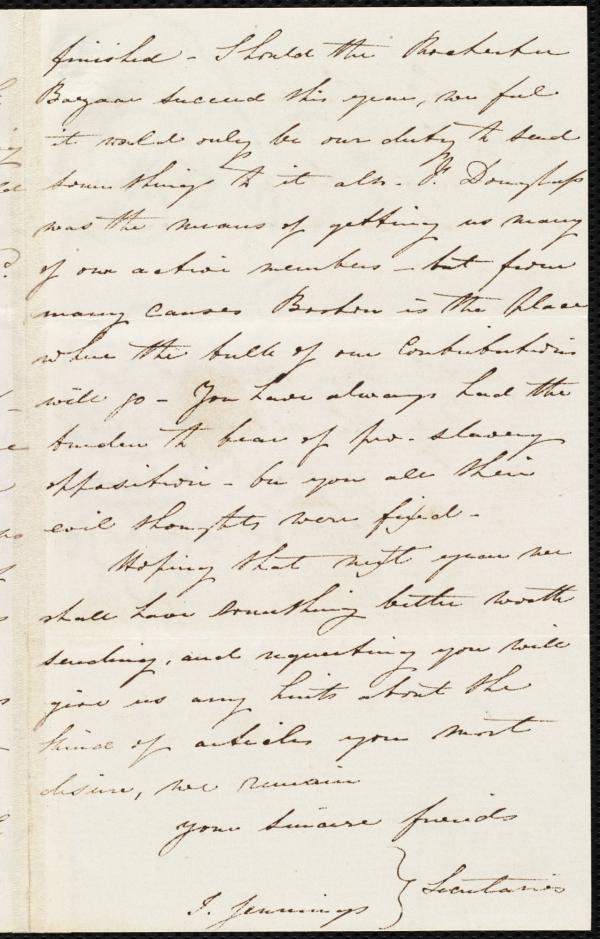 finished - Should the Rochester
Bazaar succeed this year, we feel
it would only be our duty to send
something to it also - F. Douglass
was the means of getting us many
of our active members - but from
many causes Boston is the place
where the bulk of our contributions
will go - You have always had the
burden to bear of pro-slavery
opposition - on you all their
evil thoughts were fixed -
Hoping that next year we
shall have something better worth
sending, and requesting you will
give us any hints about the
kind of articles you most
desire, we remain
your sincere friends
I. Jennings } Secretaries